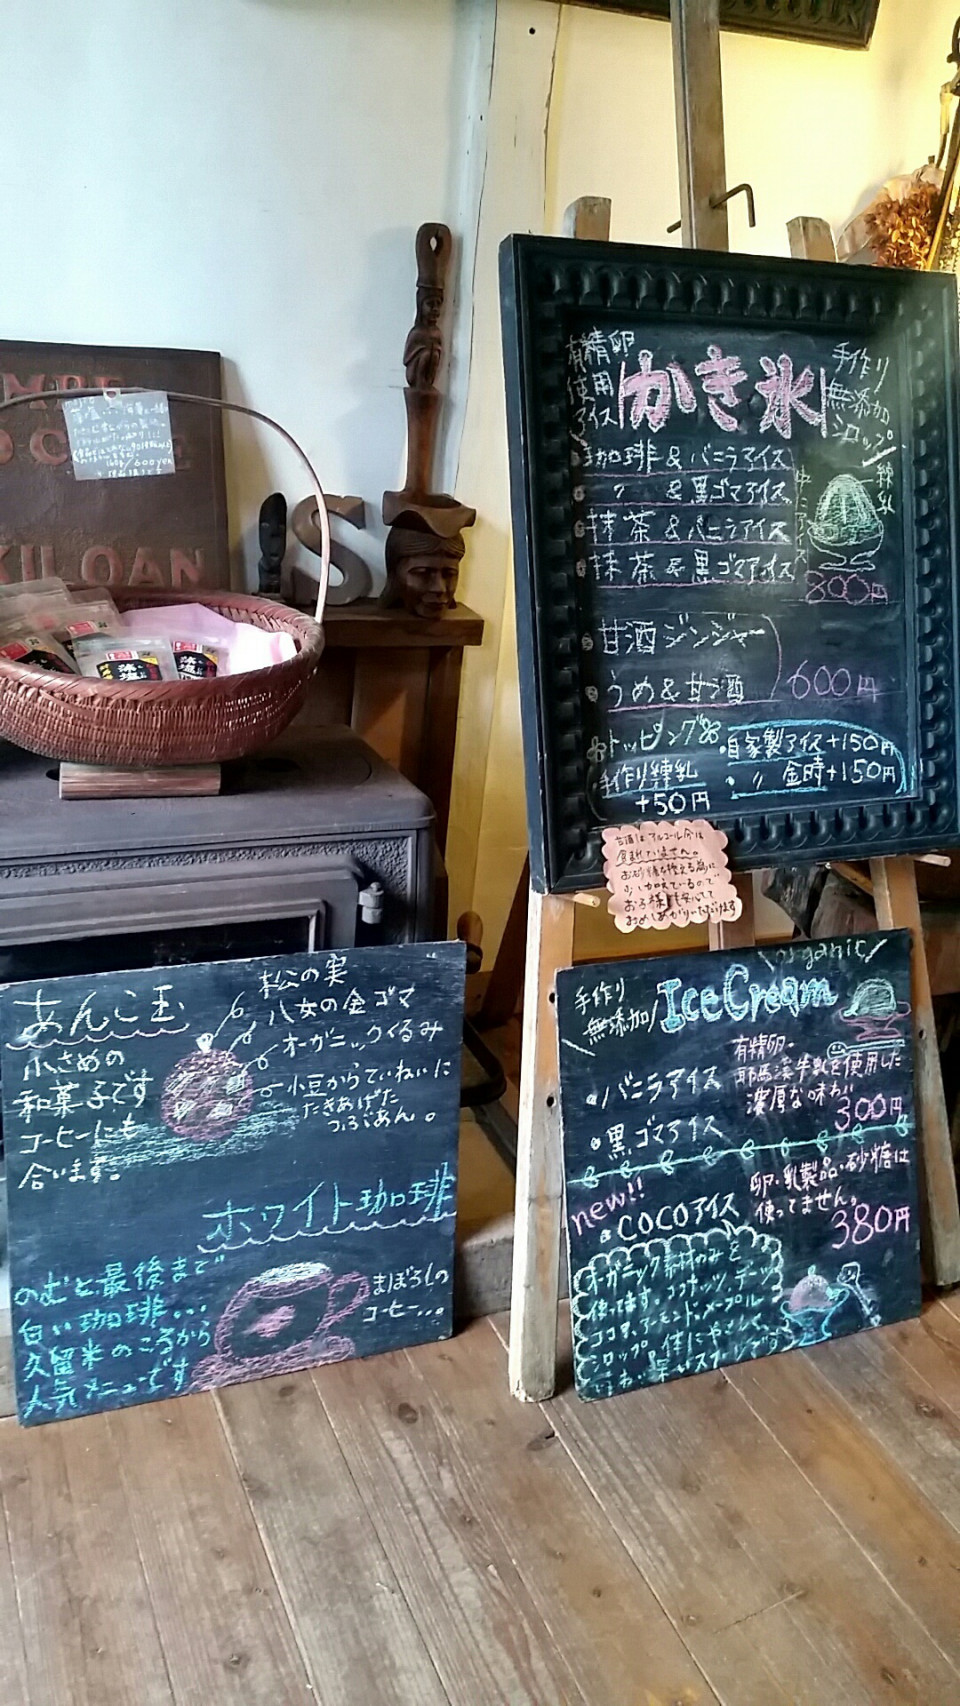 有精卵
使用
アイス
かき氷
手作り
無添加
シロップ
珈琲&バニラアイス
〃 &黒ゴマアイス
抹茶&バニラアイス
抹茶&黒ゴマアイス
中にアイス
練乳
800円
甘酒ジンジャー
うめ&甘酒
600円
トッピング
手作り練乳
+50円
・自家製アイス+150円
・〃 金時+150円
甘酒はアルコール分は
お砂糖を控える為に
少し加えているので
お子様も安心して
おめしあがりいただけます
OAN
S
160g/600yen
藻塩
あんこ玉
小さめの
和菓子です
コーヒーにも
合います。
松の実
八女の金ゴマ
オーガニックくるみ
小豆からていねいに
たきあげた
つぶあん。
ホワイト珈琲
のむと最後まで
白い珈琲...
久留米のころから
人気メニューです
まぼろしの
コーヒー...
organic
手作り
無添加
Ice Cream
・バニラアイス
・黒ゴマアイス
有精卵。
耶馬溪牛乳を使用した
濃厚な味わい
300円
new!!
・COCOアイス
卵・乳製品・砂糖は
使ってません。
380円
オーガニック素材のみを
使ってます。ココナッツ、デーツ
ココア、アーモンド、メープル
シロップ。体にやさしく、